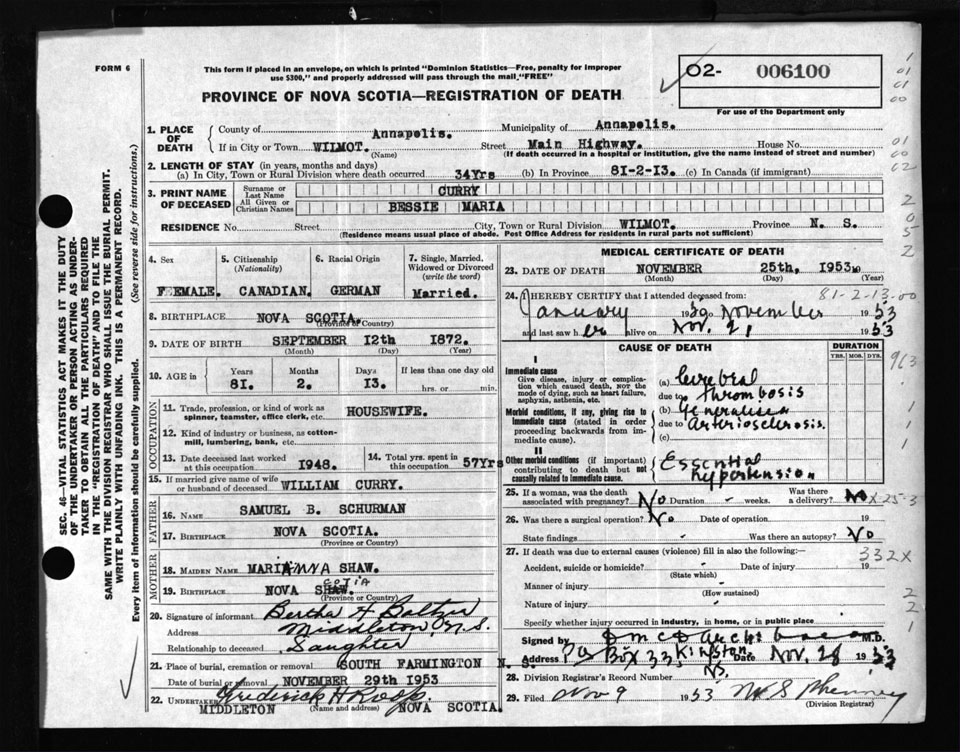 FORM 6
This form if placed in an envelope, on which is printed "Dominion Statistics—Free, penalty for improper
use $300," and properly addressed will pass through the mail "FREE"
O2- 006100
PROVINCE OF NOVA SCOTIA—REGISTRATION OF DEATH
For use of the Department only
SEC. 46—VITAL STATISTICS ACT MAKES IT THE DUTY
OF THE UNDERTAKER OR PERSON ACTING AS UNDER-
TAKER TO OBTAIN ALL THE PARTICULARS REQUIRED
IN THE "REGISTRATION OF DEATH" AND TO FILE THE
SAME WITH THE DIVISION REGISTRAR WHO SHALL ISSUE THE BURIAL PERMIT.
WRITE PLAINLY WITH UNFADING INK. THIS IS A PERMANENT RECORD.
Every item of information should be carefully supplied. (See reverse side for instructions.)
1. PLACE OF DEATH
County of Annapolis. Municipality of Annapolis.
If in City or Town WILMOT. Street Main Highway. House No.
(Name) (If death occurred in a hospital or institution, give the name instead of street and number)
2. LENGTH OF STAY (in years, months and days)
(a) In City, Town or Rural Division where death occurred 34Yrs (b) In Province 81-2-13. (c) In Canada (if immigrant)
3. PRINT NAME OF DECEASED
Surname or Last Name CURRY
All Given or Christian Names BESSIE MARIA
RESIDENCE No. Street City, Town or Rural Division WILMOT. Province N. S.
(Residence means usual place of abode. Post Office Address for residents in rural parts not sufficient)
4. Sex
5. Citizenship (Nationality)
6. Racial Origin
7. Single, Married, Widowed or Divorced (write the word)
FEMALE. CANADIAN. GERMAN Married.
8. BIRTHPLACE NOVA SCOTIA.
(Province or Country)
9. DATE OF BIRTH SEPTEMBER 12th 1872.
(Month) (Day) (Year)
10. AGE in Years Months Days If less than one day old
81. 2. 13. hrs. or min.
OCCUPATION
11. Trade, profession, or kind of work as spinner, teamster, office clerk, etc. HOUSEWIFE.
12. Kind of industry or business, as cotton-mill, lumbering, bank, etc.
13. Date deceased last worked at this occupation 1948.
14. Total yrs. spent in this occupation 57Yrs
15. If married give name of wife or husband of deceased WILLIAM CURRY.
FATHER
16. NAME SAMUEL B. SCHURMAN
17. BIRTHPLACE NOVA SCOTIA.
(Province or Country)
MOTHER
18. MAIDEN NAME MARIANNA SHAW.
19. BIRTHPLACE NOVA SCOTIA
(Province or Country)
20. Signature of informant Bertha H Baltzer
Address Middleton, N.S.
Relationship to deceased Daughter
21. Place of burial, cremation or removal SOUTH FARMINGTON N. S.
Date of burial or removal NOVEMBER 29th 1953
22. Undertaker Frederick H Roop.
MIDDLETON (Name and address) NOVA SCOTIA.
MEDICAL CERTIFICATE OF DEATH
23. DATE OF DEATH NOVEMBER 25th, 1953
(Month) (Day) (Year)
81-2-13-00
24. I HEREBY CERTIFY that I attended deceased from:
January 1950 November 1953
and last saw her alive on Nov. 21 1953
CAUSE OF DEATH DURATION
YRS. MOS. DYS.
I
Immediate cause
Give disease, injury or complication which caused death, NOT the mode of dying, such as heart failure, asphyxia, asthenia, etc.
(a) Cerebral
due to thrombosis
Morbid conditions, if any, giving rise to immediate cause (stated in order proceeding backwards from immediate cause).
(b) Generalised
due to Arteriosclerosis.
(c)
II
Other morbid conditions (if important) contributing to death but not causally related to immediate cause.
Essential
hypertension
25. If a woman, was the death associated with pregnancy? No Duration - weeks. Was there a delivery? No
26. Was there a surgical operation? No Date of operation 19
State findings - Was there an autopsy? No
27. If death was due to external causes (violence) fill in also the following:— 332X
Accident, suicide or homicide? - Date of injury 19
(State which)
Manner of injury -
(How sustained)
Nature of injury -
Specify whether injury occurred in industry, in home, or in public place
Signed by M.D.
Address PO Box 33, Kingston Date Nov. 28 1953
NS.
28. Division Registrar's Record Number
29. Filed Nov 9 1953
(Division Registrar)